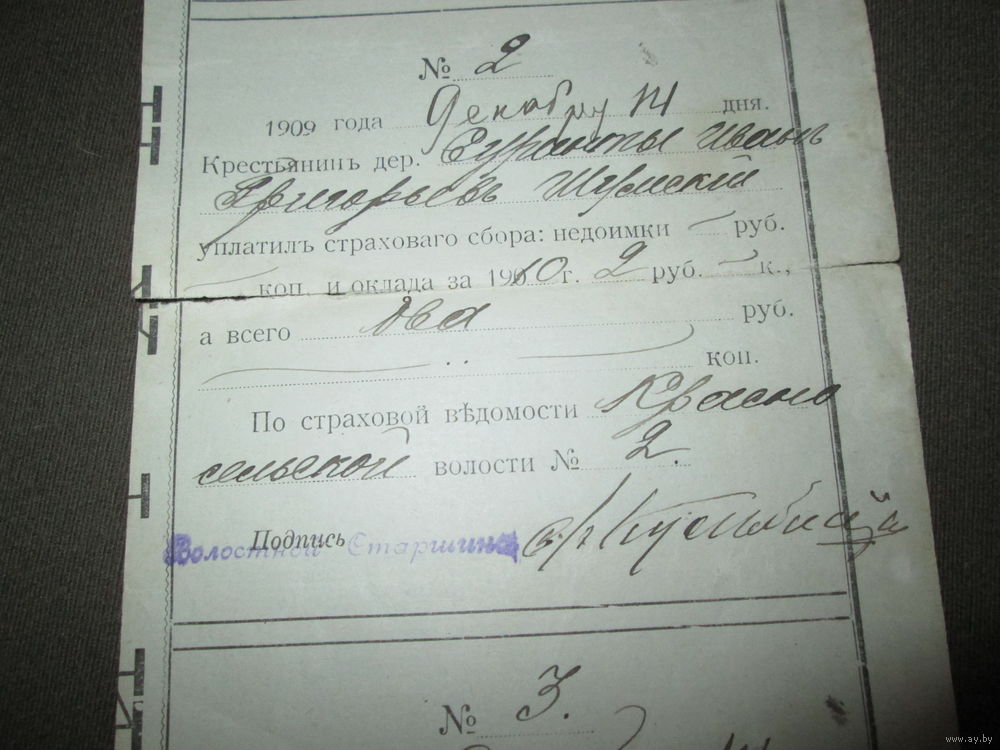 № 2
1909 года Декабру 14 дня.
Крестьянинъ дер. Еуранты Иванъ
Григорьевъ Шумскій
уплатилъ страховаго сбора: недоимки — руб.
— коп. и оклада за 1910 г. 2 руб. — к.,
а всего два руб.
— коп.
По страховой вѣдомости Красно
сельской волости № 2.
Подпись
Волостной Старшина
№ 3.
www.ay.by